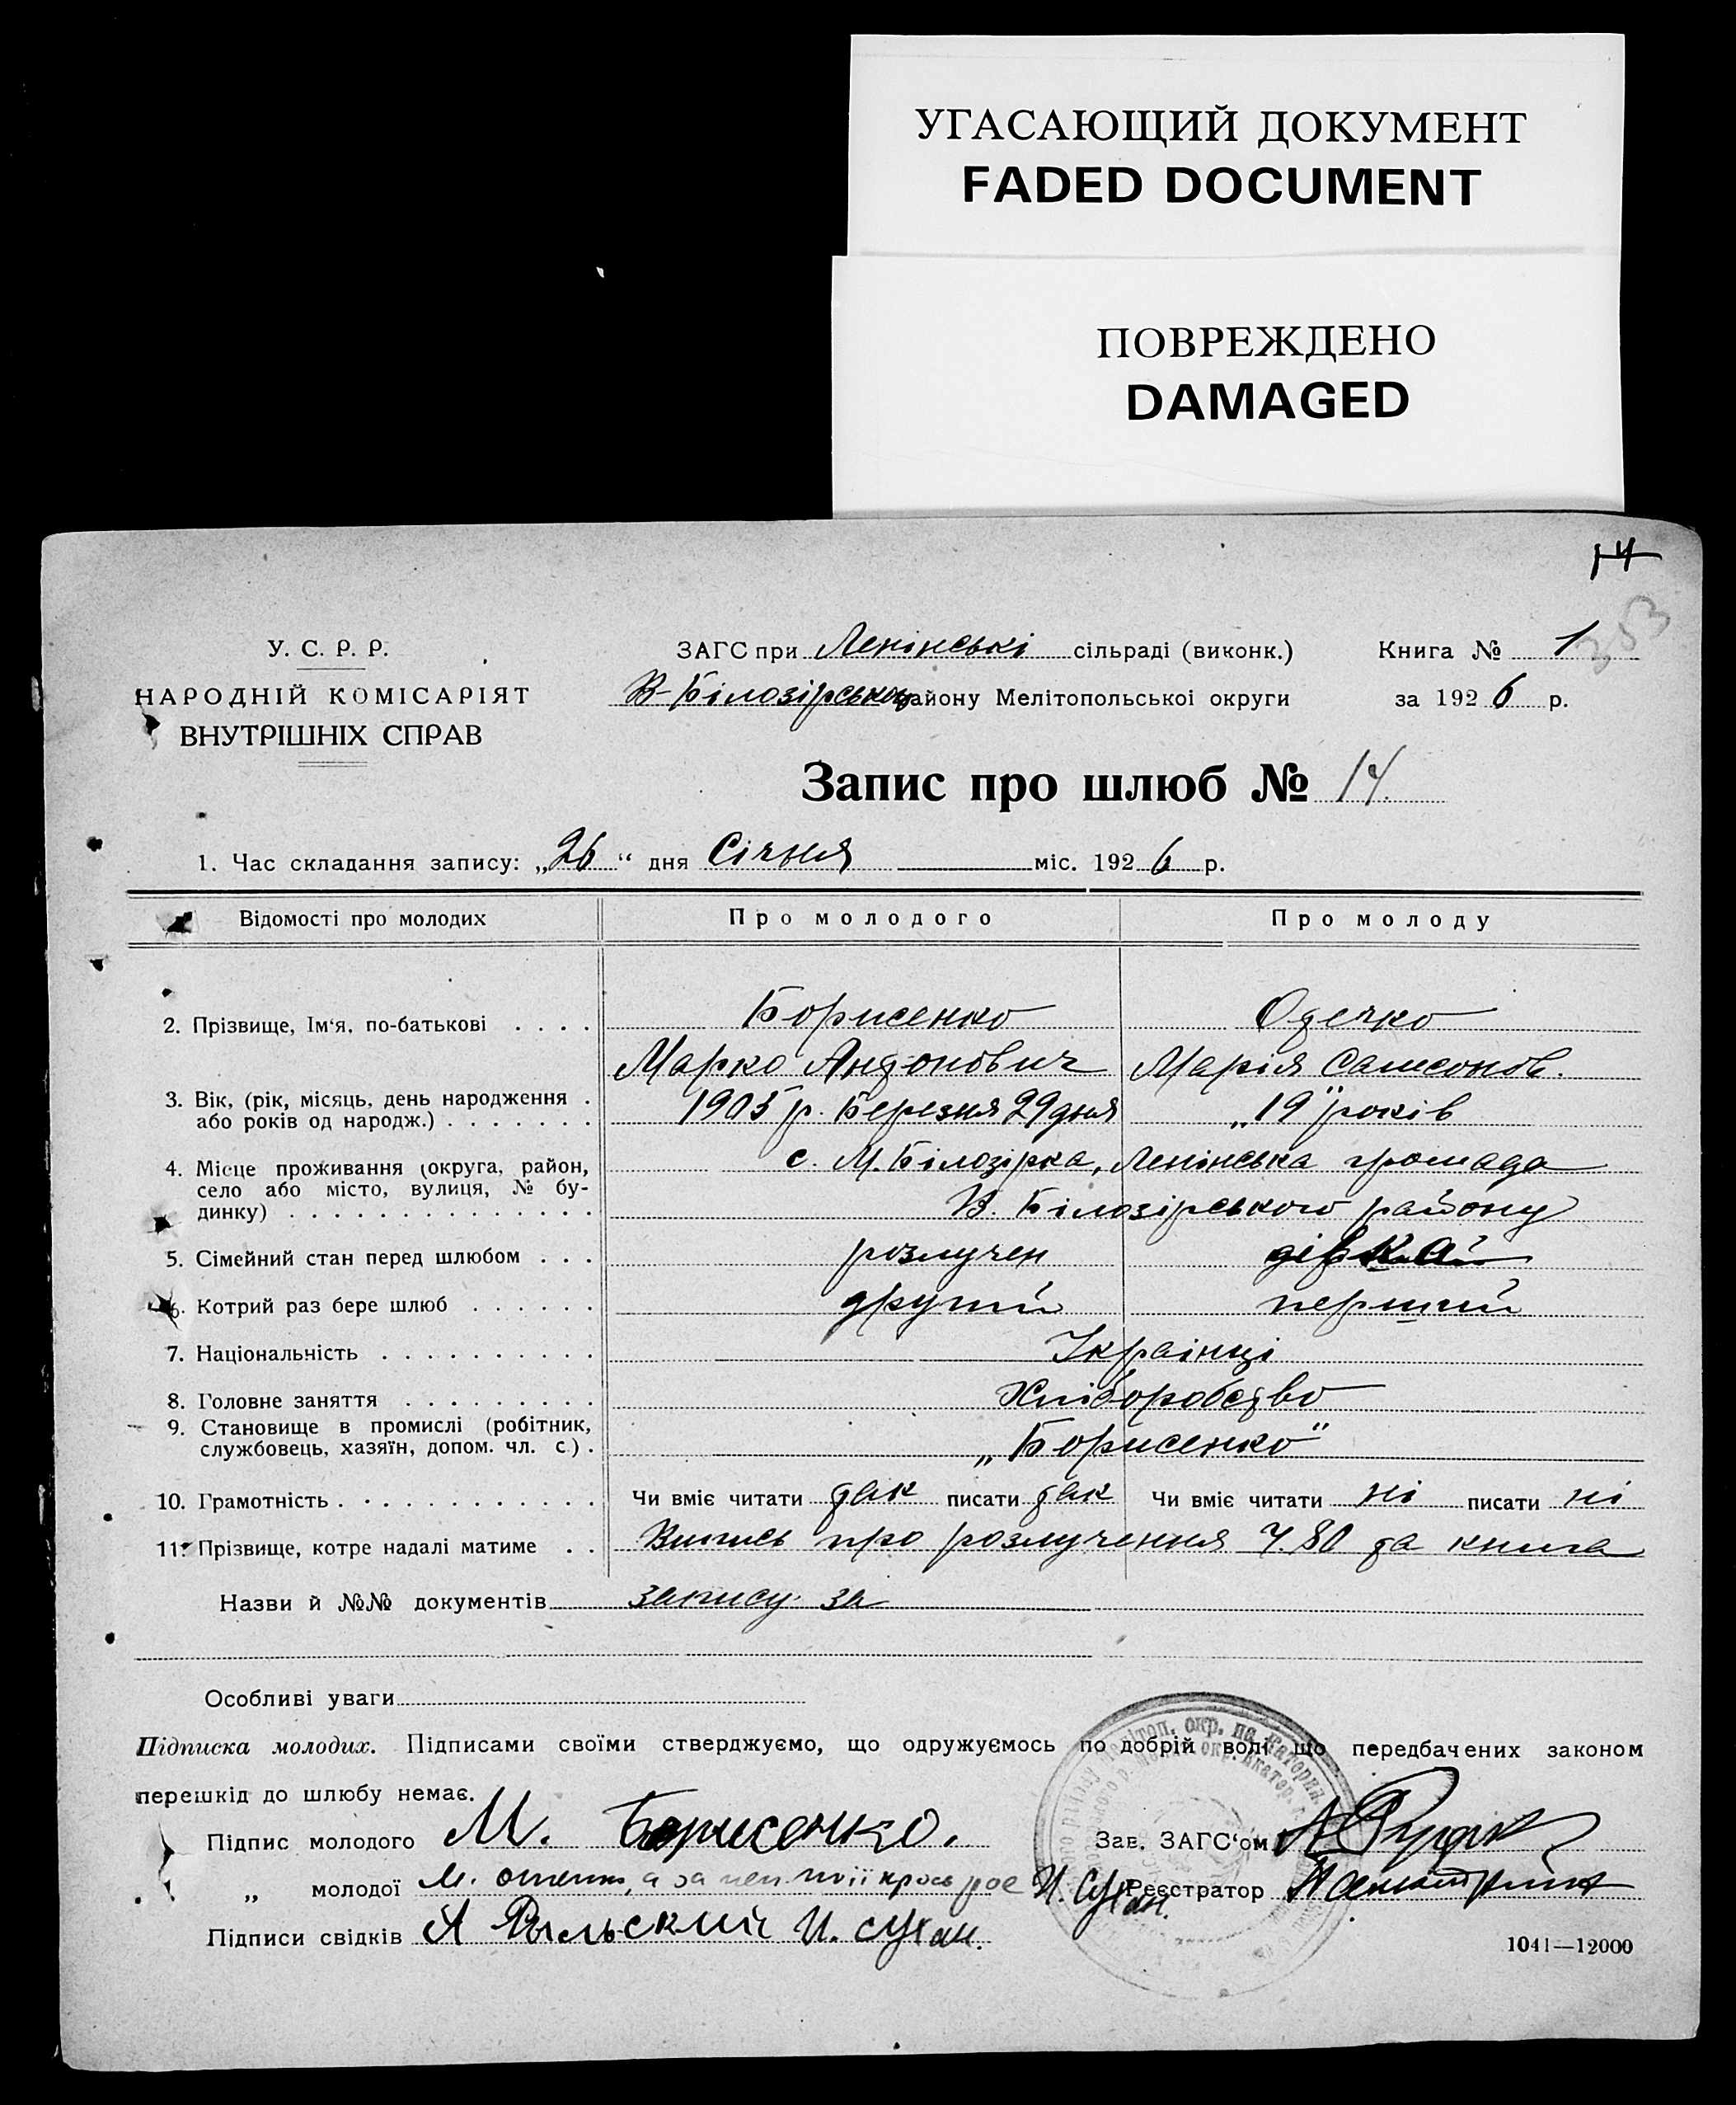 УГАСАЮЩИЙ ДОКУМЕНТ
FADED DOCUMENT
ПОВРЕЖДЕНО
DAMAGED
14
353
У. С. Р. Р.
НАРОДНІЙ КОМІСАРІЯТ
ВНУТРІШНІХ СПРАВ
ЗАГС при Ленінські сільраді (виконк.)
В-Білозірськ району Мелітопольської округи
Книга № 1
за 1926 р.
Запис про шлюб № 14.
1. Час складання запису: „26“ дня Січня міс. 1926 р.
Відомості про молодих Про молодого Про молоду
2. Прізвище, Ім'я, по-батькові . . . . Борисенко Одечко
Марко Антонович Марія Самсонов.
3. Вік, (рік, місяць, день народження . 1905 р. Березня 29 дня „19" років
або років од народж.) . . . . . . .
4. Місце проживання (округа, район, с. М. Білозірка, Ленінська громада
село або місто, вулиця, № бу-
динку) . . . . . . . . . . . . . . В. Білозірського району
5. Сімейний стан перед шлюбом . . . розлучен дівка
6. Котрий раз бере шлюб . . . . . . другий перший
7. Національність . . . . . . . . . . Українці
8. Головне заняття . . . . . . . . . Хліборобство
9. Становище в промислі (робітник,
службовець, хазяїн, допом. чл. с.) . „Борисенко"
10. Грамотність . . . . . . . . . . . . Чи вміє читати так писати так Чи вміє читати ні писати ні
11. Прізвище, котре надалі матиме . . Випись про розлучення Ч. 80 та книга
Назви й №№ документів запису за
Особливі уваги
Підписка молодих. Підписами своїми стверджуємо, що одружуємось по добрій волі що передбачених законом
перешкід до шлюбу немає.
Підпис молодого М. Борисенко. Зав. ЗАГС'ом
„ молодої И. Сухан. Реєстратор
Підписи свідків А Рыльский И. Сухан.
1041—12000